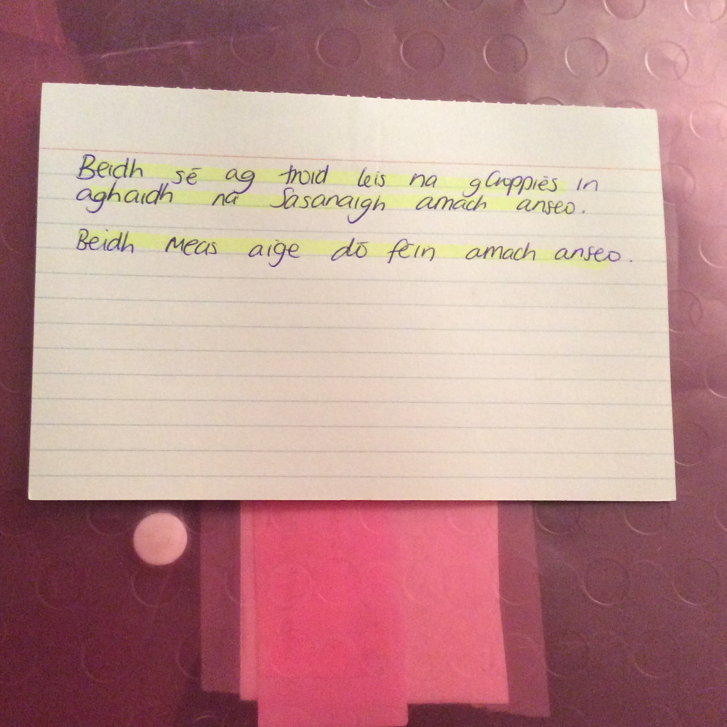 Beidh sé ag troid leis na gCroppiés in
aghaidh na Sasanaigh amach anseo.
Beidh meas aige dó féin amach anseo.